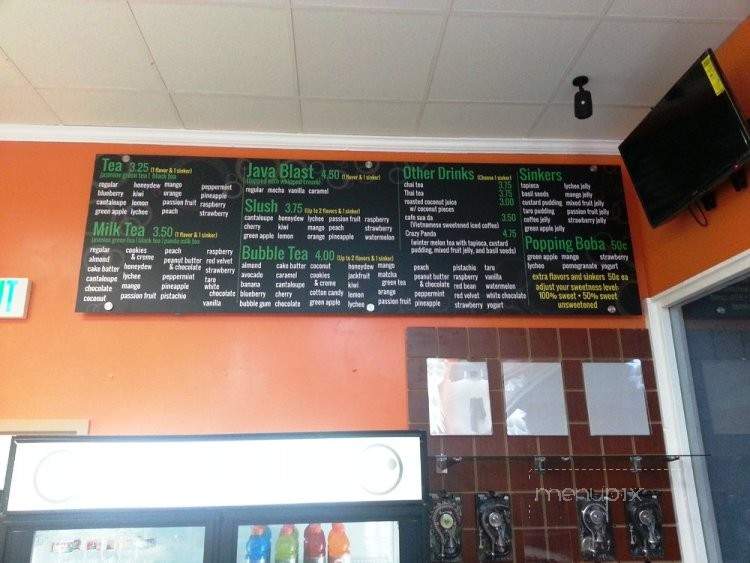 Tea 3.25 (1 flavor & 1 sinker)
jasmine green tea | black tea
regular honeydew mango peppermint
blueberry kiwi orange pineapple
cantaloupe lemon passion fruit raspberry
green apple lychee peach strawberry
Milk Tea 3.50 (1 flavor & 1 sinker)
jasmine green tea | black tea | panda milk tea
regular cookies & creme peach raspberry
almond honeydew peanut butter & chocolate red velvet
cake batter kiwi peppermint strawberry
cantaloupe lychee pineapple taro
chocolate mango pistachio white chocolate
coconut passion fruit vanilla
Java Blast 4.50 (1 flavor & 1 sinker)
(topped with whipped cream)
regular mocha vanilla caramel
Slush 3.75 (Up to 2 flavors & 1 sinker)
cantaloupe honeydew lychee passion fruit raspberry
cherry kiwi mango peach strawberry
green apple lemon orange pineapple watermelon
Bubble Tea 4.00 (Up to 2 flavors & 1 sinker)
almond cake batter coconut honeydew mango peach pistachio taro
avocado caramel cookies & creme jackfruit matcha green tea peanut butter & chocolate raspberry vanilla
banana cantaloupe cotton candy kiwi orange peppermint red bean watermelon
blueberry cherry green apple lemon passion fruit pineapple red velvet white chocolate
bubble gum chocolate lychee strawberry yogurt
Other Drinks (Choose 1 sinker)
chai tea 3.75
Thai tea 3.75
roasted coconut juice 3.00
w/ coconut pieces
cafe sua da 3.50
(Vietnamese sweetened iced coffee)
Crazy Panda 4.75
(winter melon tea with tapioca, custard
pudding, mixed fruit jelly, and basil seeds)
Sinkers
tapioca lychee jelly
basil seeds mango jelly
custard pudding mixed fruit jelly
taro pudding passion fruit jelly
coffee jelly strawberry jelly
green apple jelly
Popping Boba 50¢
green apple mango strawberry
lychee pomegranate yogurt
extra flavors and sinkers 50¢ ea
adjust your sweetness level:
100% sweet • 50% sweet
unsweetened
menupix